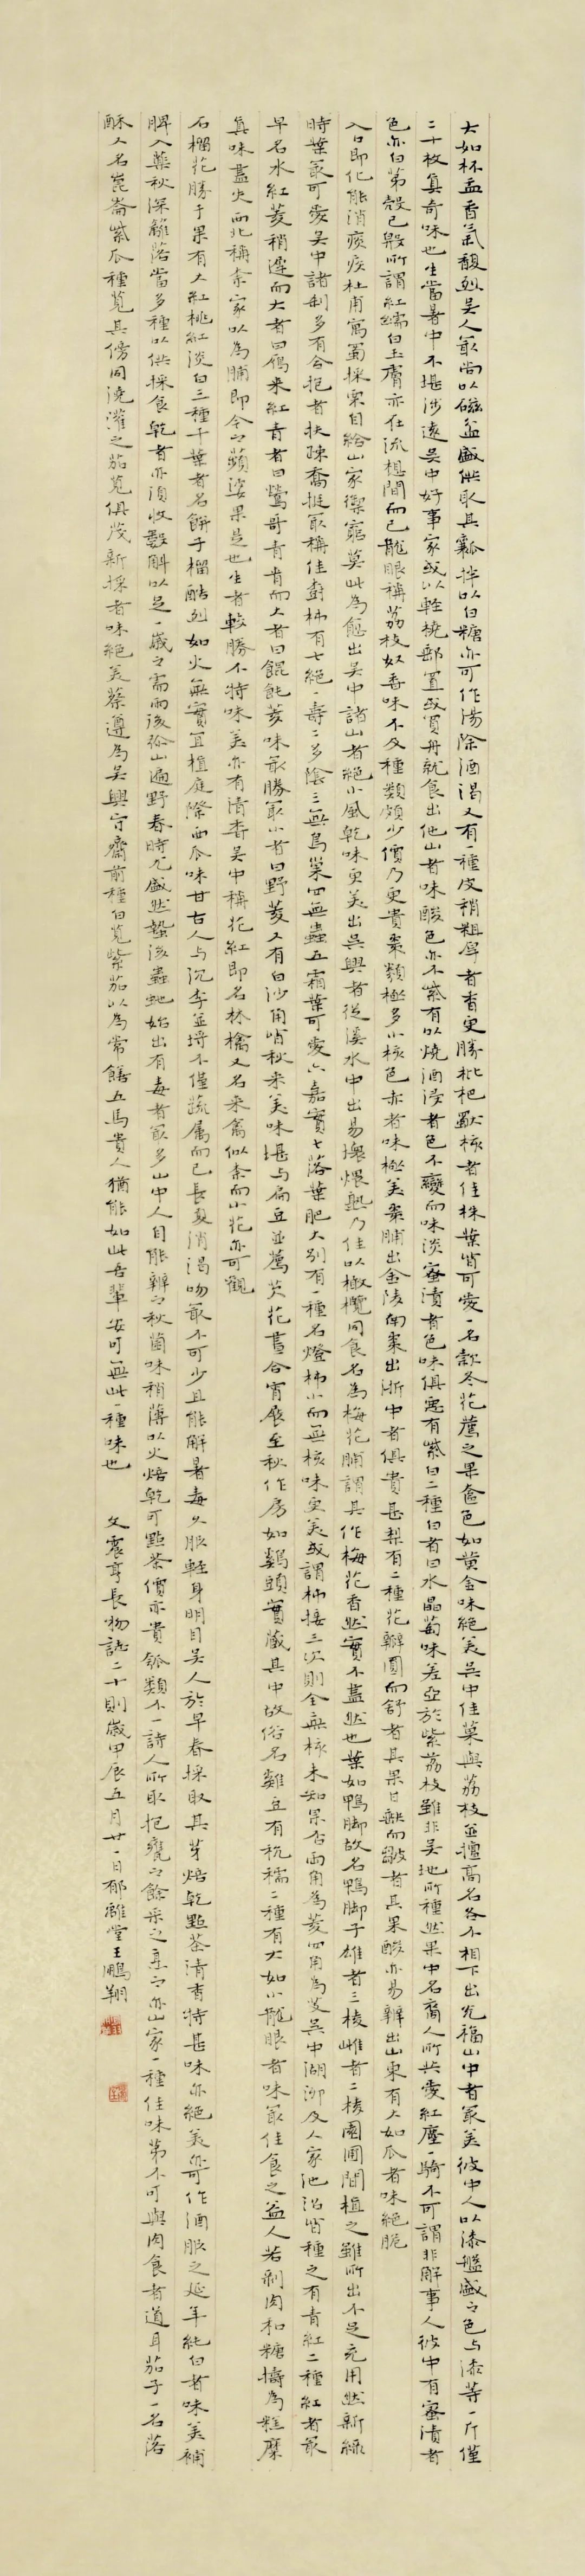 大如杯盂香氣馥烈吳人最尚以磁盆盛供取其瓤拌以白糖亦可作湯除酒渴又有一種皮稍粗厚者香更勝枇杷獨核者佳株葉皆可愛一名款冬花薦之果奩色如黃金味絕美吳中佳菓與荔枝並擅高名各不相下出光福山中者最美彼中人以漆盤盛之色与漆等一斤僅
二十枚真奇味也生當暑中不堪涉遠吳中好事家或以輕橈郵置或買舟就食出他山者味酸色亦不紫有以燒酒浸者色不變而味淡蜜漬者色味俱惡有紫白二種白者曰水晶萄味差亞於紫荔枝雖非吳地所種然果中名裔人所共愛紅塵一騎不可謂非解事人彼中有蜜漬者
色亦白第殼已毀所謂紅繻白玉膚亦在流想間而已龍眼稱荔枝奴香味不及種類頗少價乃更貴棗類極多小核色赤者味極美棗脯出金陵南棗出浙中者俱貴甚梨有二種花瓣圓而舒者其果甘缺而皺者其果酸亦易辨出山東有大如瓜者味絕脆
入口即化能消痰疾杜甫寓蜀採栗自給山家禦窮莫此為愈出吳中諸山者絕小風乾味更美出吳興者從溪水中出易壞煨熟乃佳以橄欖同食名為梅花脯謂其作梅花香然實不盡然也葉如鴨脚故名鴨脚子雄者三棱雌者二棱園圃間植之雖所出不足充用然新綠
時葉最可愛吳中諸剎多有合抱者扶疎喬挺最稱佳樹柿有七絕一壽二多陰三無鳥巢四無蟲五霜葉可愛六嘉實七落葉肥大別有一種名燈柿小而無核味更美或謂柿接三次則全無核未知果否兩角為菱四角為芰吳中湖泖及人家池沼皆種之有青紅二種紅者最
早名水紅菱稍遲而大者曰鴈来紅青者曰鶯哥青青而大者曰餛飩菱味最勝最小者曰野菱又有白沙角皆秋来美味堪与扁豆並薦芡花晝合宵展至秋作房如鷄頭實藏其中故俗名雞豆有秔糯二種有大如小龍眼者味最佳食之益人若剝肉和糖擣為糕糜
真味盡失西北稱柰家以為脯即今之蘋婆果是也生者較勝不特味美亦有清香吳中稱花紅即名林檎又名来禽似柰而小花亦可觀
石榴花勝于果有大紅桃紅淡白三種千葉者名餅子榴酷烈如火無實宜植庭際西瓜味甘古人与沉李並埒不僅蔬属而已長夏消渴吻最不可少且能解暑毒久服輕身明目吳人於早春採取其芽焙乾點茶清香特甚味亦絕美亦可作酒服之延年純白者味美補
脾入藥秋深籬落當多種以供採食乾者亦須收數斛以足一歲之需雨後弥山遍野春時尤盛然蟄後蟲虵始出有毒者最多山中人自能辨之秋菌味稍薄以火焙乾可點茶價亦貴瓠類不一詩人所取抱甕之餘采之烹之亦山家一種佳味第不可與肉食者道耳茄子一名落
酥人名崑崙紫瓜種莧其傍同澆灌之茄莧俱茂新採者味絕美蔡遵為吳興守齋前種白莧紫茄以為常膳五馬貴人猶能如此吾輩安可無此一種味也 文震亨長物誌二十則歲甲辰五月廿一日郁離堂王鵬翔